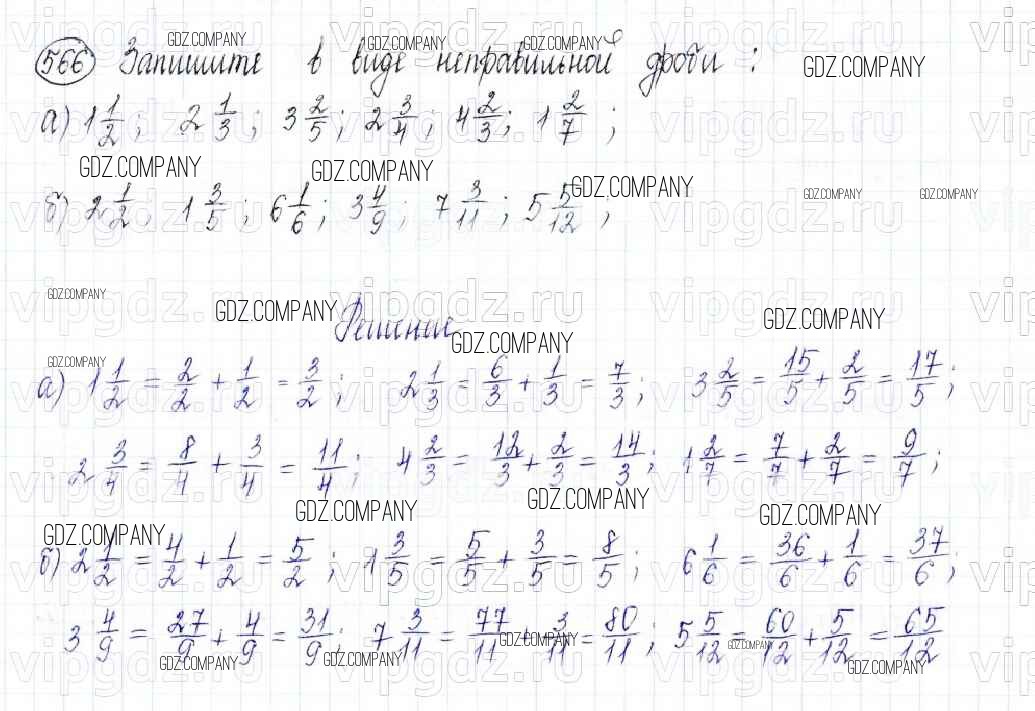 566 Запишите в виде неправильной дроби :
а) 1 1/2 ; 2 1/3 ; 3 2/5 ; 2 3/4 ; 4 2/3 ; 1 2/7 ;
б) 2 1/2 ; 1 3/5 ; 6 1/6 ; 3 4/9 ; 7 3/11 ; 5 5/12 ;
Решение
а) 1 1/2 = 2/2 + 1/2 = 3/2 ; 2 1/3 = 6/3 + 1/3 = 7/3 ; 3 2/5 = 15/5 + 2/5 = 17/5 ;
2 3/4 = 8/4 + 3/4 = 11/4 ; 4 2/3 = 12/3 + 2/3 = 14/3 ; 1 2/7 = 7/7 + 2/7 = 9/7 ;
б) 2 1/2 = 4/2 + 1/2 = 5/2 ; 1 3/5 = 5/5 + 3/5 = 8/5 ; 6 1/6 = 36/6 + 1/6 = 37/6 ;
3 4/9 = 27/9 + 4/9 = 31/9 ; 7 3/11 = 77/11 + 3/11 = 80/11 ; 5 5/12 = 60/12 + 5/12 = 65/12
GDZ.COMPANY
vipgdz.ru